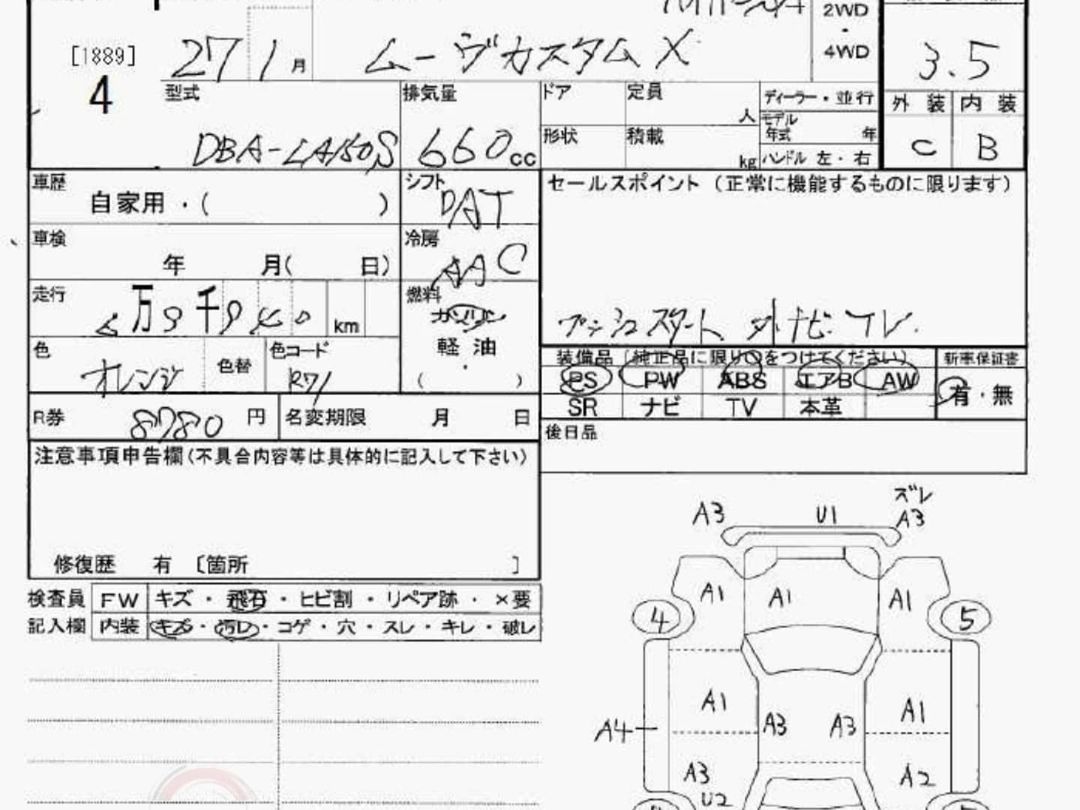 2WD
・
4WD
[1889]
4
27 1 月 ムーヴカスタム X
3.5
型式 DBA-LA150S
排気量 660cc
ドア 定員 人
形状 積載 kg
ディーラー・並行
モデル年式 年
ハンドル 左・右
外装 内装
C B
車歴 自家用・( )
シフト DAT
セールスポイント (正常に機能するものに限ります)
車検 年 月( 日)
冷房 AAC
走行 万 千 km
燃料 ガソリン
軽油
・
( )
プッシュスタート 外ナビ TV.
色 オレンジ 色替 色コード R71
装備品 (純正品に限り○をつけてください) 新車保証書
PS PW ABS エアB AW 有・無
SR ナビ TV 本革
R券 8780 円 名変期限 月 日
後日品
注意事項申告欄(不具合内容等は具体的に記入して下さい)
修復歴 有 〔箇所 ]
検査員 FW キズ・飛石・ヒビ割・リペア跡・×要
記入欄 内装 キズ・汚レ・コゲ・穴・スレ・キレ・破レ
ズレ
A3 U1 A3
A1 A1 A1
4 5
A1 A1
A4 A3 A3
A3 A2
U2